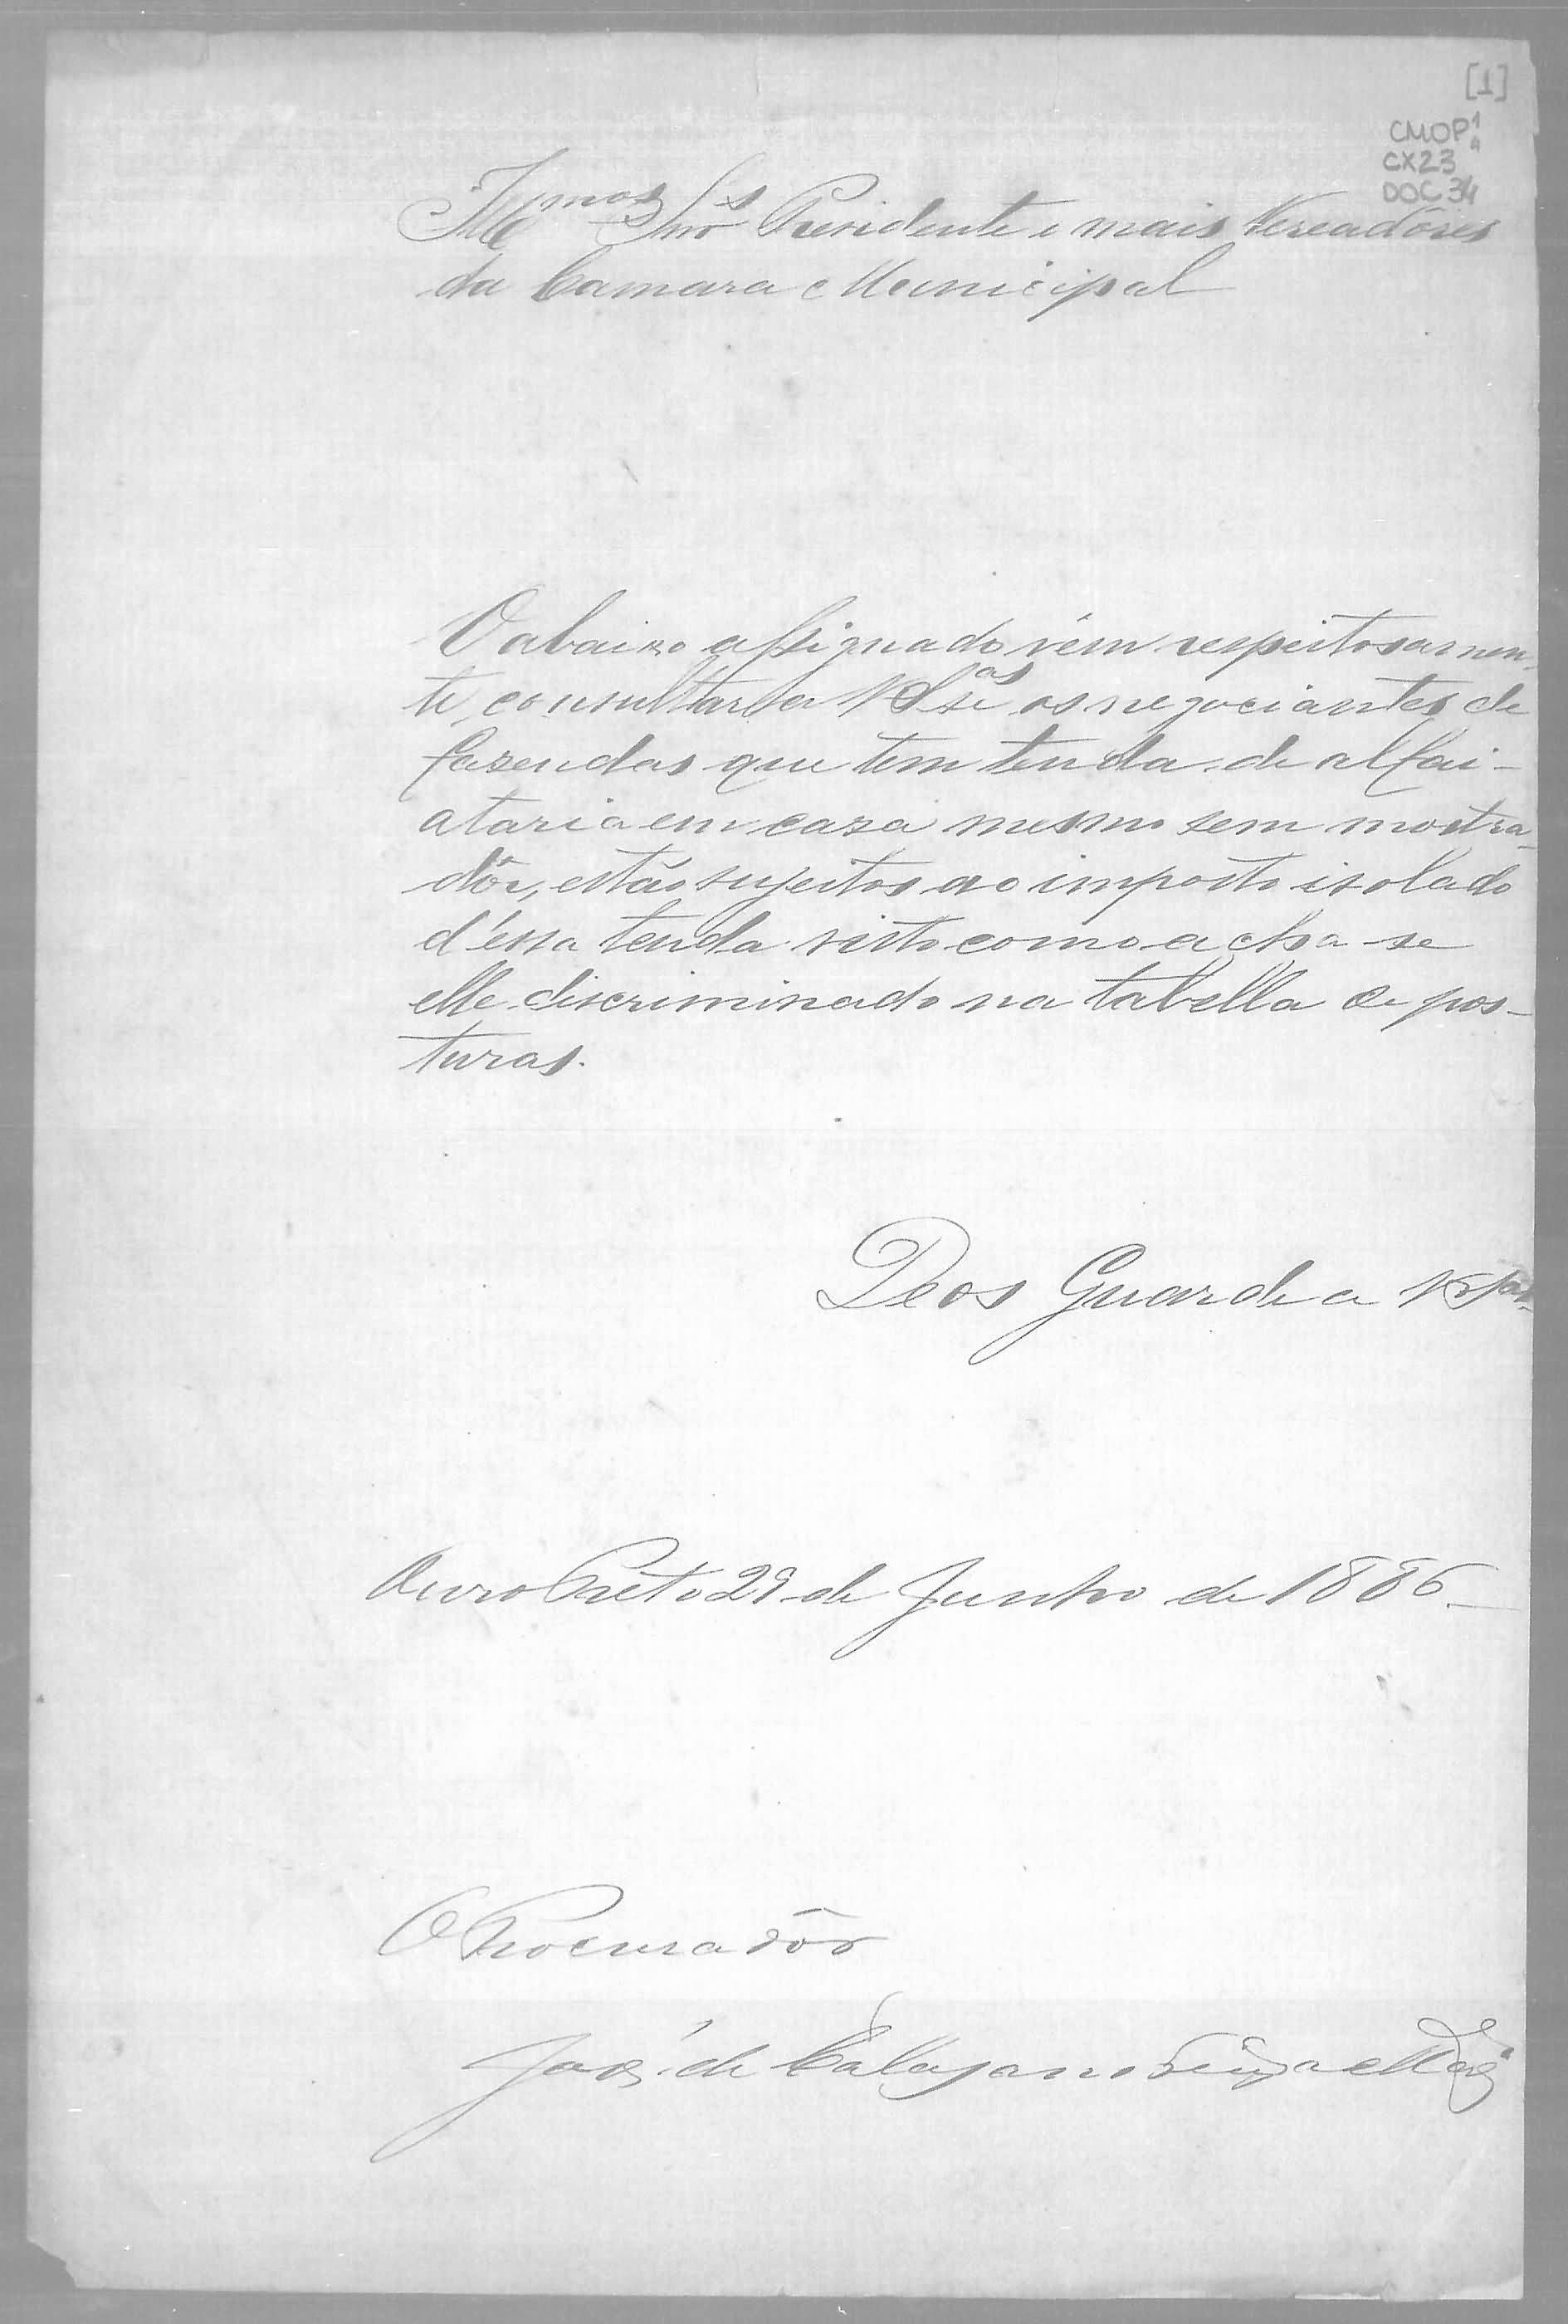 [1]
CMOP
CX23
DOC 34
Illmos Snrs Presidente e mais Vereadôres
da Camara Municipal
O abaixo assignado vém respeitosamen-
te, consultar a VSas se os negociantes de
fazendas que tem tenda de alfai-
ataria em caza mesmo sem mostra-
dôr, estão sujeitos ao imposto isolado
d'essa tenda visto como acha-se
elle discriminado na tabella de pos-
turas.
Deos Guarde a VSas
Ouro Preto 29 de Junho de 1886
O Procuradôr
José de Calasans